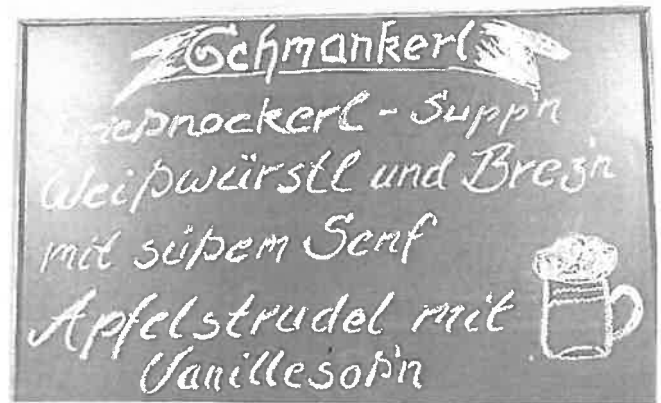 Schmankerl
Grießnockerl - Supp'n
Weißwürstl und Brez'n
mit süßem Senf
Apfelstrudel mit
Vanillesoß'n